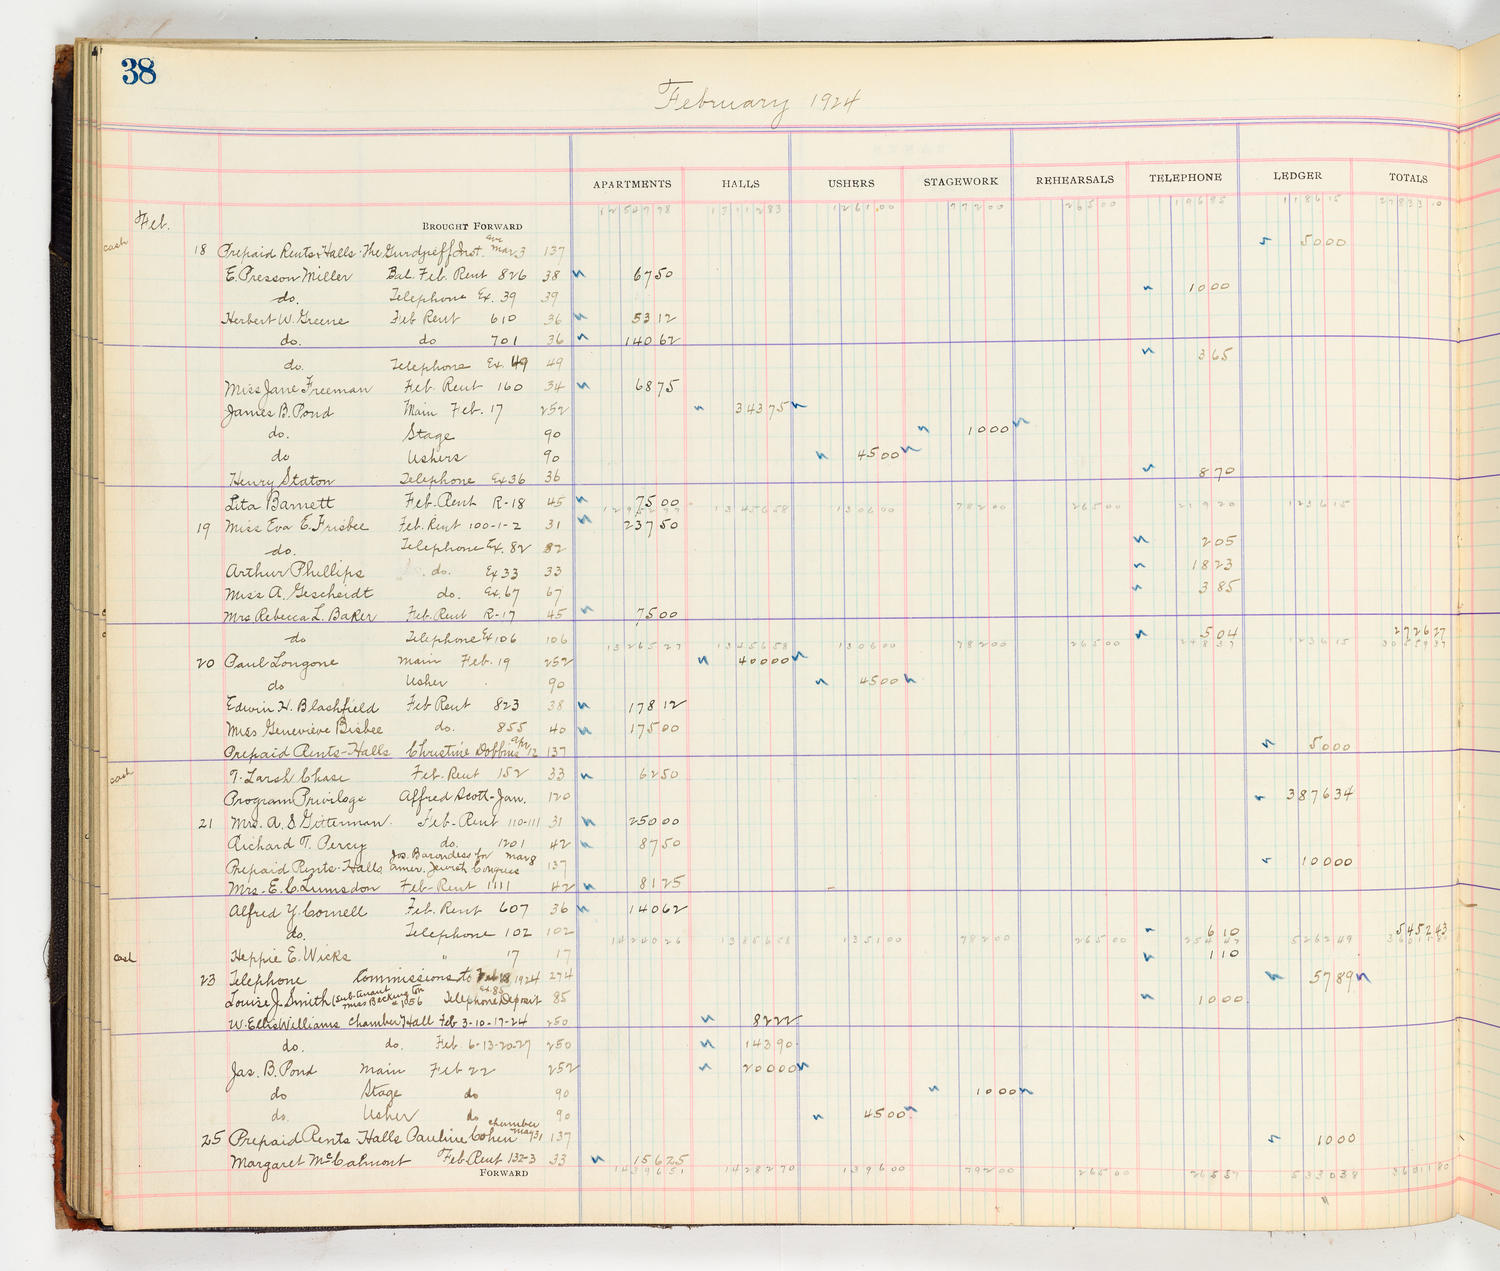 38
February 1924
APARTMENTS HALLS USHERS STAGEWORK REHEARSALS TELEPHONE LEDGER TOTALS
Feb. BROUGHT FORWARD 1254778 1311283 126100 77200 26500 19695 118615
cash 18 Prepaid Rents-Halls-The Gurdjieff Inst. eve Mar 3 137 5000
E. Presson Miller Bal. Feb. Rent 826 38 6750
do. Telephone Ex. 39 39 1000
Herbert W. Greene Feb Rent 610 36 5312
do. do 701 36 14062
do. Telephone Ex. 49 49 365
Miss Jane Freeman Feb. Rent 160 34 6875
James B. Pond Main Feb. 17 252 34375
do. Stage 90 1000
do Ushers 90 4500
Henry Staton Telephone Ex 36 36 870
Lita Barnett Feb. Rent R-18 45 7500
1345658 130600 78200 26500 21920 123615
19 Miss Eva E. Frisbee Feb. Rent 100-1-2 31 23750
do. Telephone Ex. 82 82 205
Arthur Phillips do. Ex 33 33 1823
Miss A. Gescheidt do. Ex. 67 67 385
Mrs Rebecca L. Baker Feb. Rent R-17 45 7500
do Telephone Ex 106 106 504 272627
1326527 1345658 130600 78200 26500 24837 123615 3055937
20 Paul Longone Main Feb. 19 252 40000
do Usher 90 4500
Edwin H. Blashfield Feb Rent 823 38 17812
Miss Genevieve Bisbee do. 855 40 17500
Prepaid Rents-Halls Christine Dobbins Apr 12 137 5000
cash T. Larsh Chase Feb. Rent 152 33 6250
Program Privilege Alfred Scott-Jan. 120 387634
21 Mrs. A. S Gitterman. Feb-Rent 110-111 31 25000
Richard T. Percy do. 1201 42 8750
Prepaid Rents-Halls Jos. Barondess for Mar 8 Amer. Jewish Congress 137 10000
Mrs. E. C Lumsdon Feb-Rent 1111 42 8125
Alfred Y. Cornell Feb. Rent 607 36 14062
do. Telephone 102 102 610 545243
1424026 1385658 135100 78200 26500 25447 526249
cash Heppie E. Wicks " 17 17 110
23 Telephone Commissions to Feb 18 1924 274 5789
Louise J. Smith (subtenant Miss Beckington #1056 Telephone Deposit Ex. 85 85 1000
W. Ellis Williams Chamber Hall Feb 3-10-17-24 250 8222
do. do. Feb 6-13-20-27 250 14390
Jas. B. Pond Main Feb 22 252 20000
do Stage do 90 1000
do. Usher do 90 4500
25 Prepaid Rents Halls Pauline Cohen chamber May 31 137 1000
Margaret McCalmont Feb. Rent 132-3 33 15625
FORWARD 1439651 1428270 139600 79200 26500 26557 533038 3601180